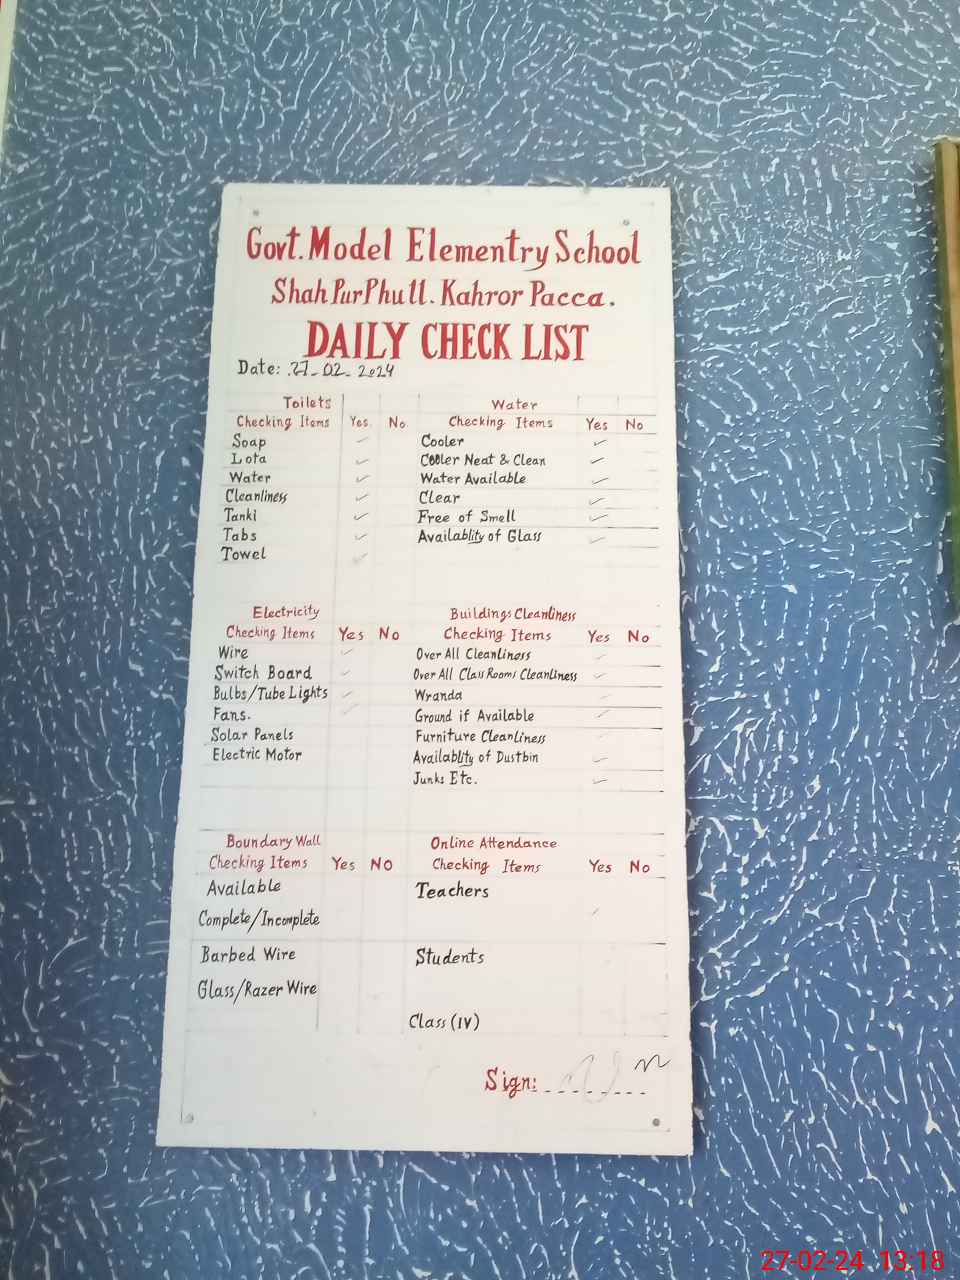 Govt. Model Elementry School
Shah Pur Phull. Kahror Pacca.
DAILY CHECK LIST
Date: 27-02-2024
Toilets
Checking Items Yes. No.
Soap ✓
Lota ✓
Water ✓
Cleanliness ✓
Tanki ✓
Tabs ✓
Towel ✓
Water
Checking Items Yes No
Cooler ✓
Cooler Neat & Clean ✓
Water Available ✓
Clear ✓
Free of Smell ✓
Availablity of Glass ✓
Electricity
Checking Items Yes No
Wire ✓
Switch Board ✓
Bulbs/Tube Lights ✓
Fans. ✓
Solar Panels
Electric Motor
Buildings Cleanliness
Checking Items Yes No
Over All Cleanliness ✓
Over All Class Rooms Cleanliness ✓
Wranda ✓
Ground if Available ✓
Furniture Cleanliness
Availablity of Dustbin ✓
Junks Etc. ✓
Boundary Wall
Checking Items Yes No
Available
Complete/Incomplete
Barbed Wire
Glass/Razer Wire
Online Attendance
Checking Items Yes No
Teachers
Students
Class (IV)
Sign:
27-02-24 13:18